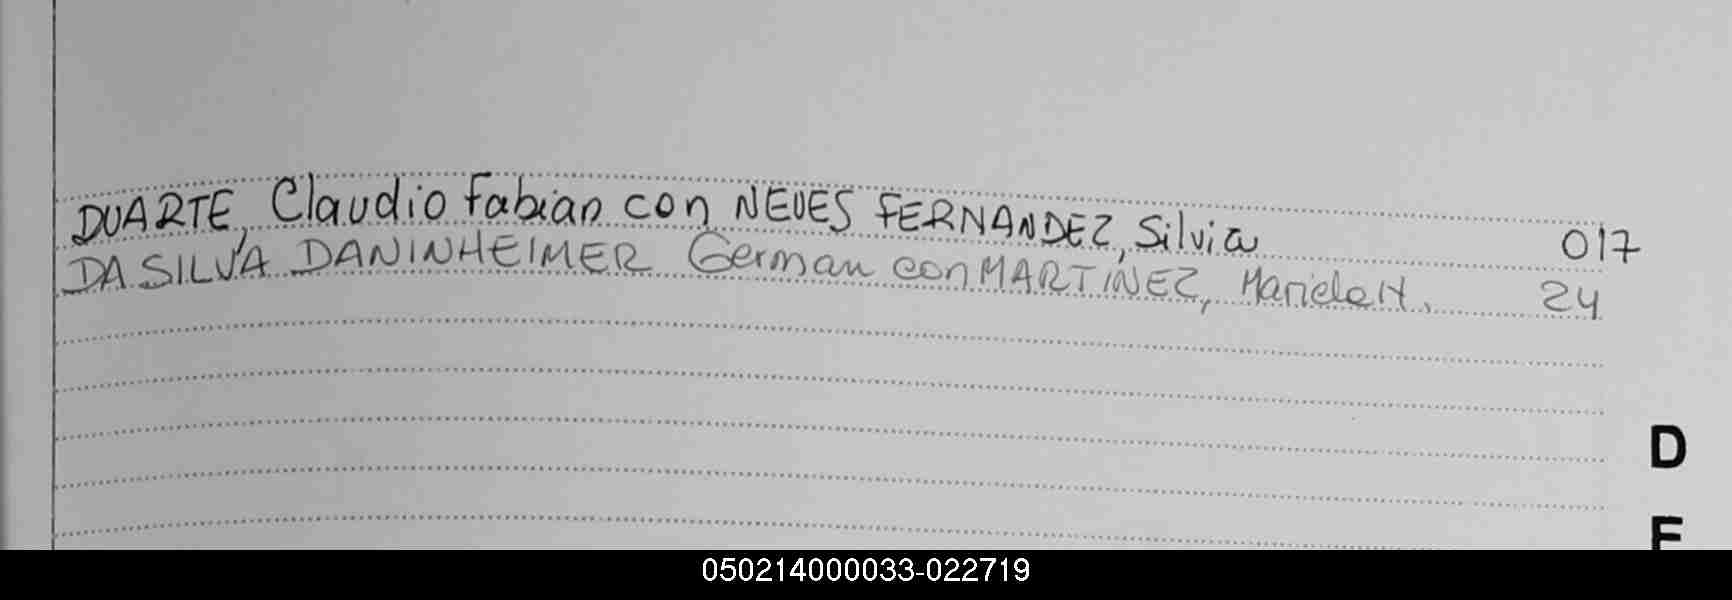 DUARTE, Claudio Fabian con NEVES FERNANDEZ, Silvia 017
DA SILVA DANINHEIMER German con MARTINEZ, Mariela H. 24
D
E
050214000033-022719